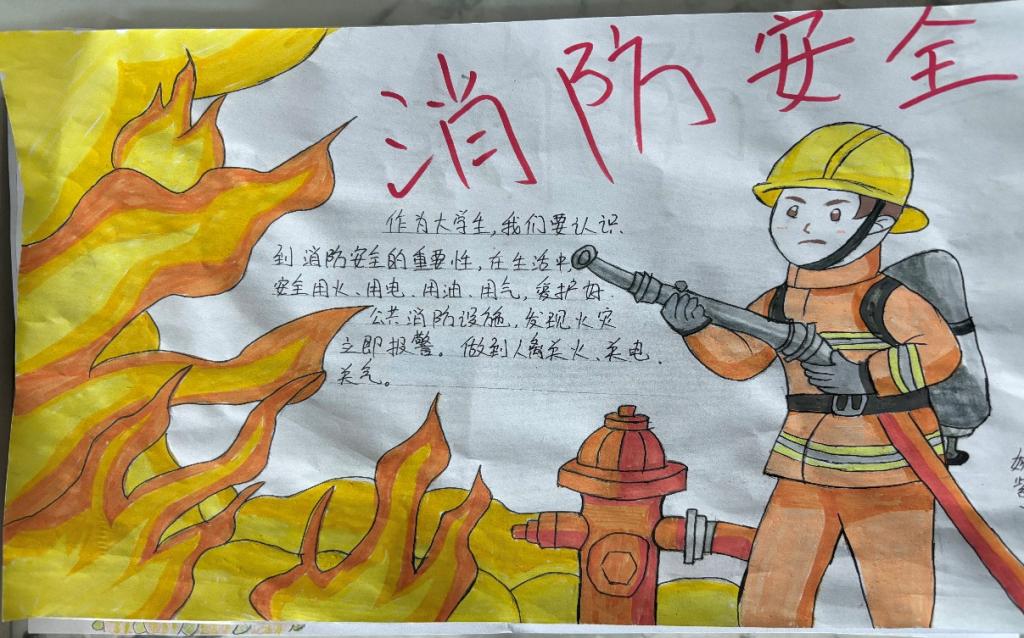 消防安全
作为大学生,我们要认识
到消防安全的重要性,在生活中,
安全用火、用电、用油、用气,爱护好
公共消防设施,发现火灾
立即报警。做到人离关火、关电、
关气。